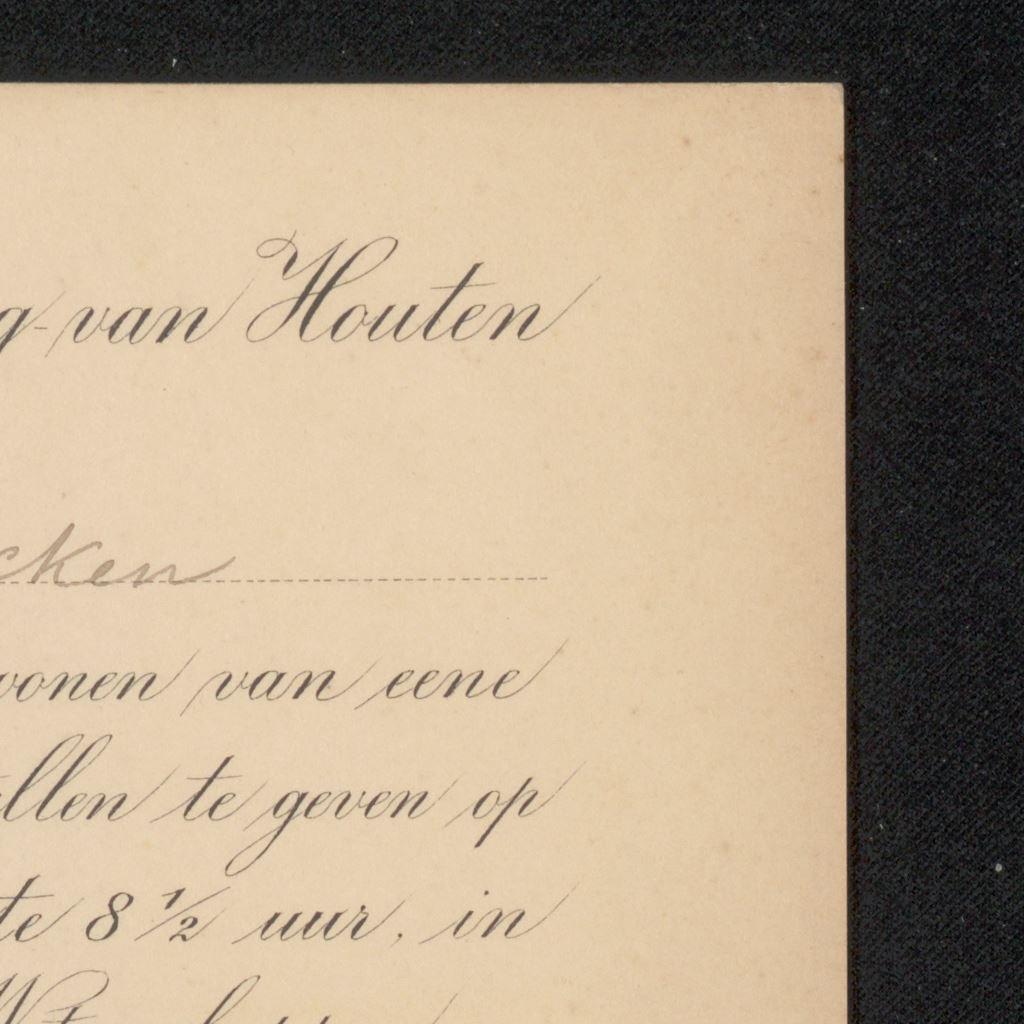 g-van Houten
cken
wonen van eene
llen te geven op
te 8 1/2 uur, in